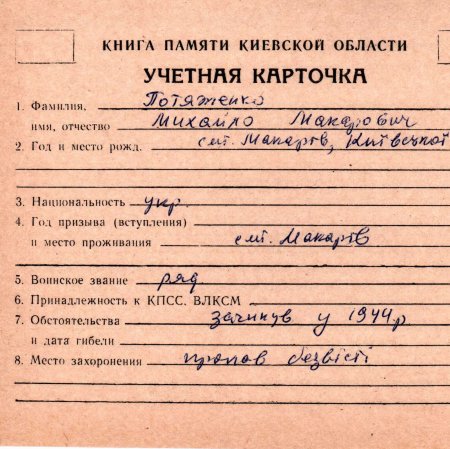 КНИГА ПАМЯТИ КИЕВСКОЙ ОБЛАСТИ
УЧЕТНАЯ КАРТОЧКА
1. Фамилия, Потяженко
имя, отчество Михайло Макарович
2. Год и место рожд. смт. Макарів, Київської
3. Национальность укр.
4. Год призыва (вступления)
и место проживания смт. Макарів
5. Воинское звание ряд
6. Принадлежность к КПСС, ВЛКСМ
7. Обстоятельства загинув у 1944 р
и дата гибели
8. Место захоронения пропав безвісті